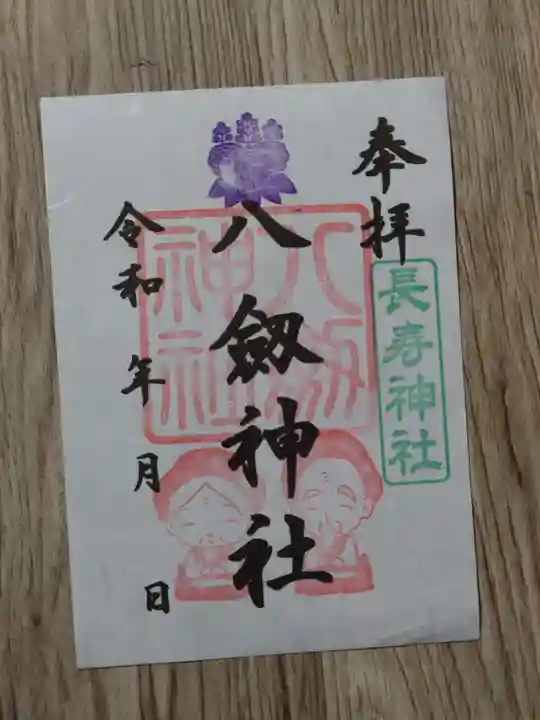 奉拝
長寿神社
八劔神社
八劔神社
令和 年 月 日